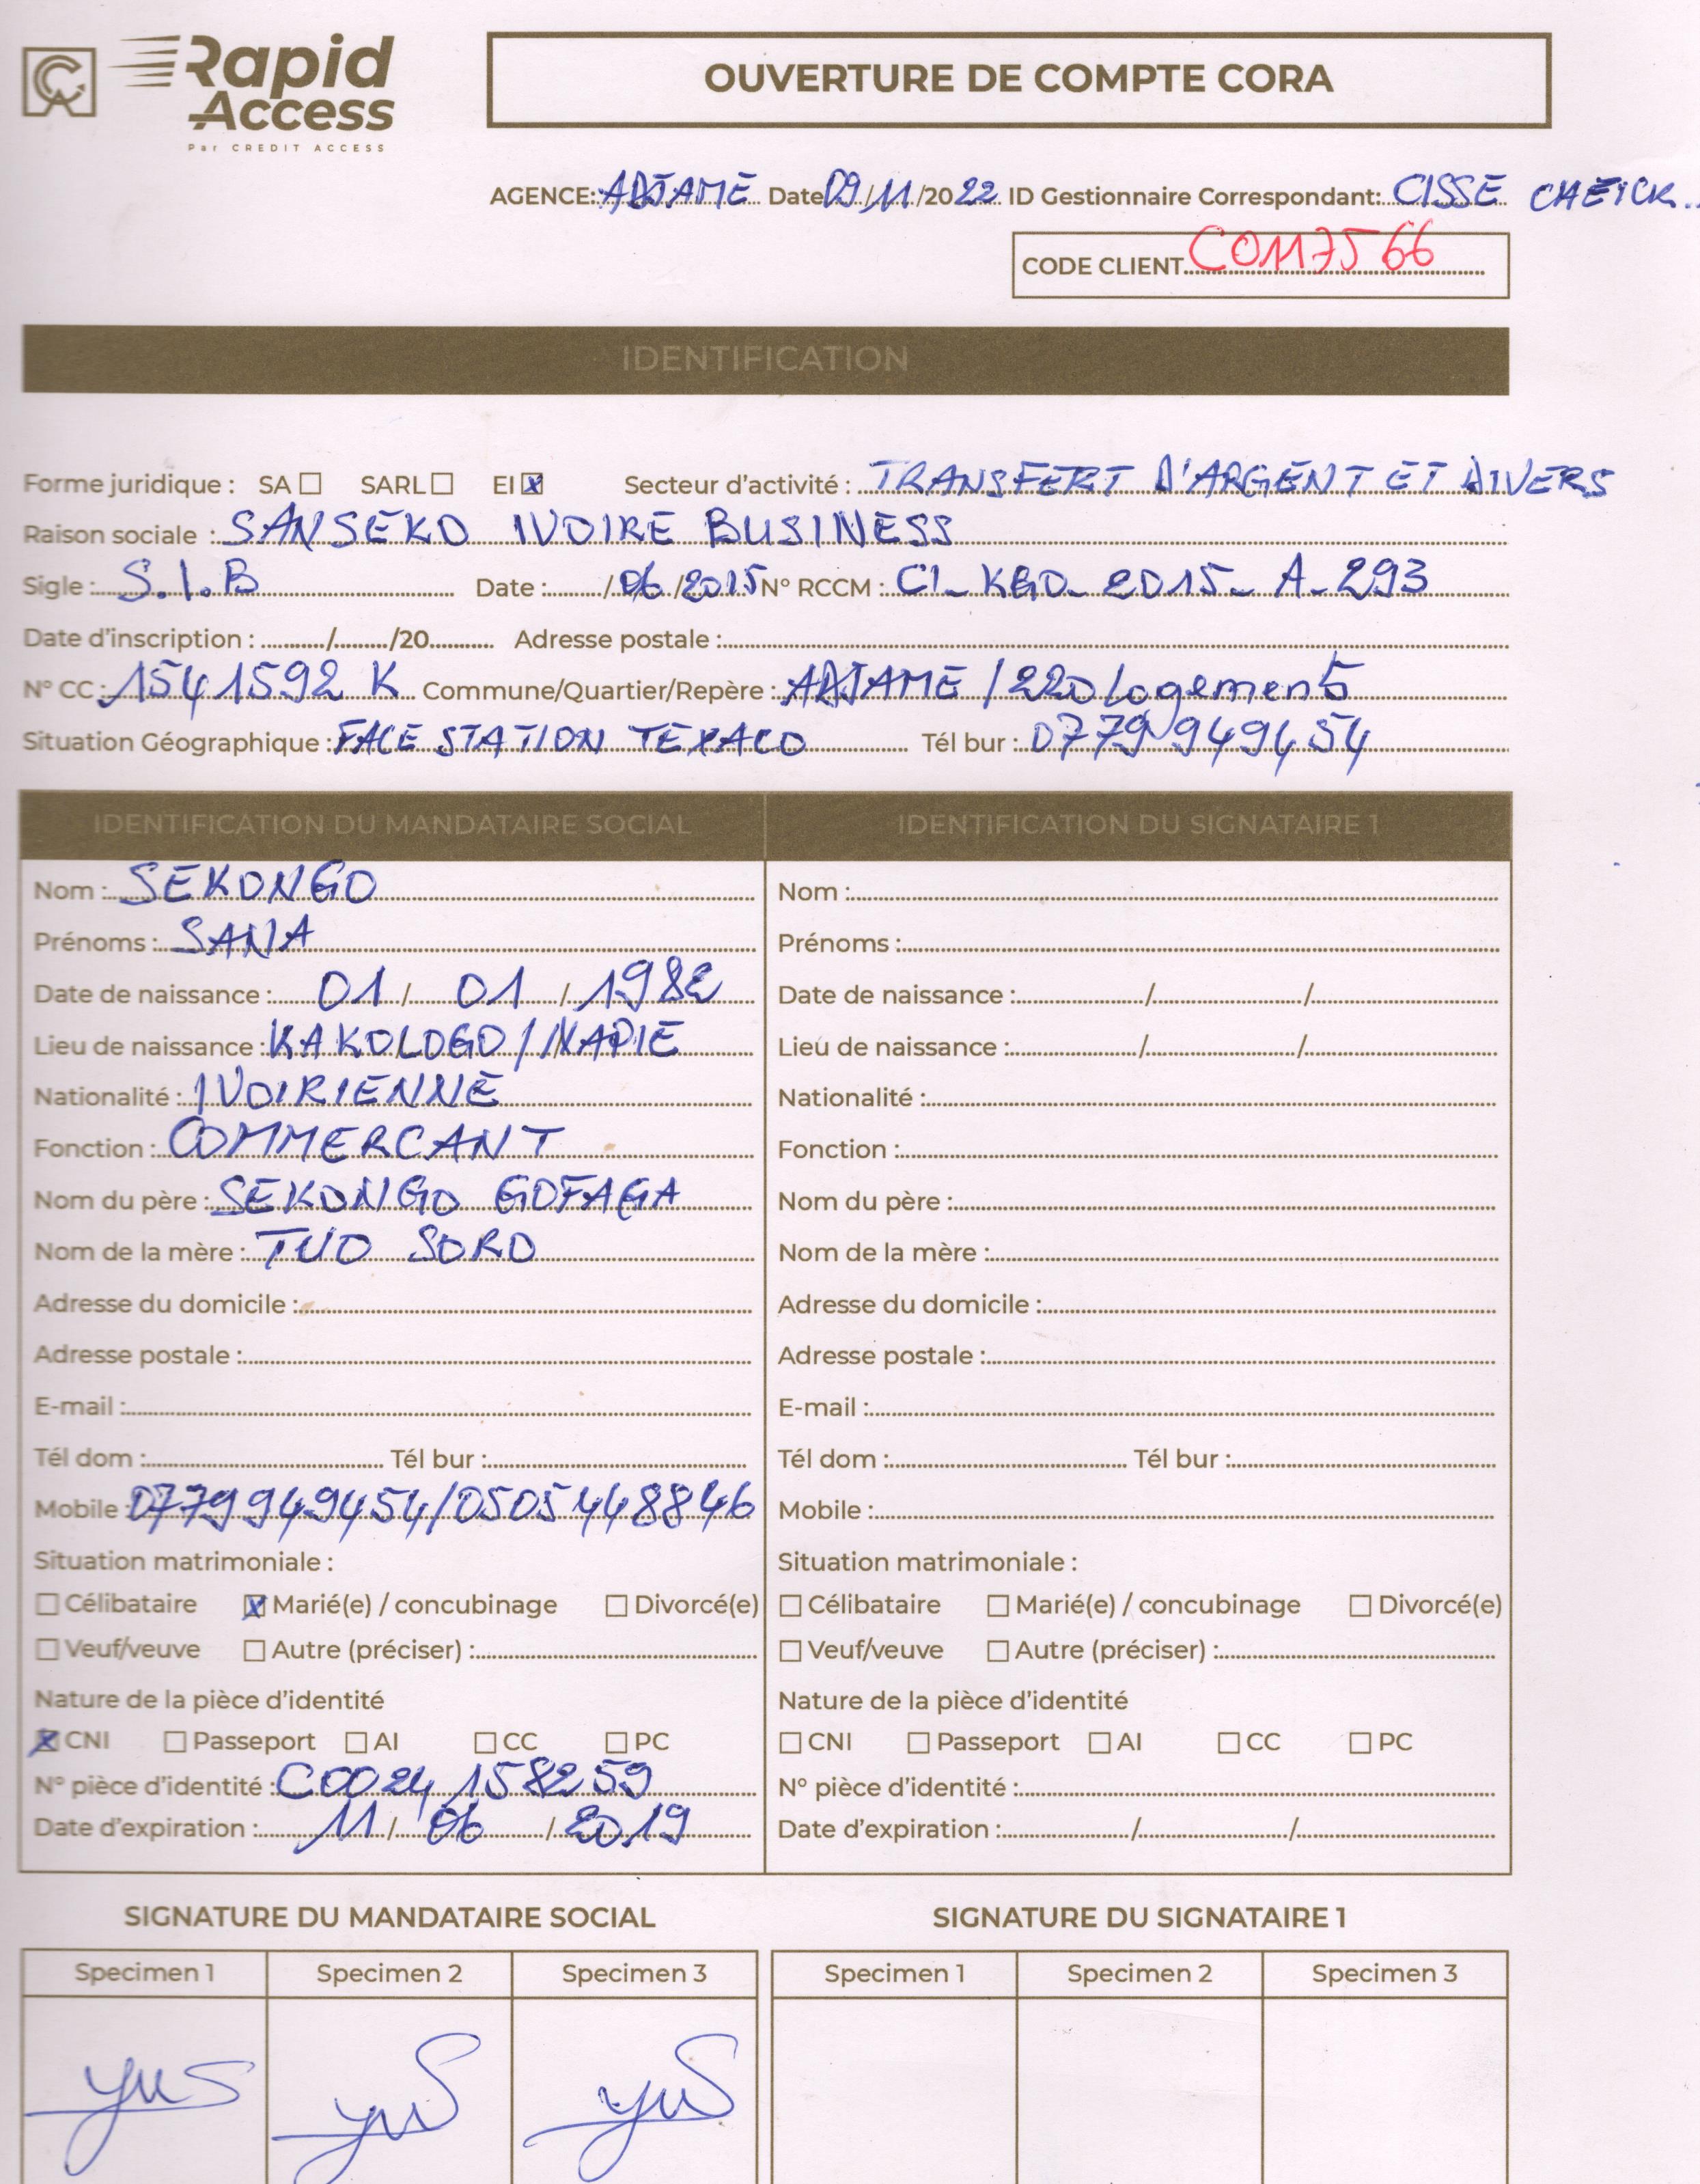 Rapid Access
Par CREDIT ACCESS
OUVERTURE DE COMPTE CORA
AGENCE: ADJAME Date 09/11/2022 ID Gestionnaire Correspondant: CISSE CHEICK
CODE CLIENT C0117566
IDENTIFICATION
Forme juridique : SA ☐ SARL ☐ EI ☒ Secteur d'activité : TRANSFERT D'ARGENT ET DIVERS
Raison sociale : SANSEKO IVOIRE BUSINESS
Sigle : S.I.B Date : ......../06/2015 N° RCCM : CI_KGO_2015_A_293
Date d'inscription : ........./......../20......... Adresse postale :
N° CC : 1541592 K Commune/Quartier/Repère : ADJAME / 220 logements
Situation Géographique : FACE STATION TEXACO Tél bur : 0779949454
IDENTIFICATION DU MANDATAIRE SOCIAL
Nom : SEKONGO
Prénoms : SANA
Date de naissance : 01 / 01 / 1982
Lieu de naissance : KAKOLOGO / NAPIE
Nationalité : IVOIRIENNE
Fonction : COMMERCANT
Nom du père : SEKONGO GOFAGA
Nom de la mère : TUO SORO
Adresse du domicile :
Adresse postale :
E-mail :
Tél dom : Tél bur :
Mobile : 0779949454/0505448846
Situation matrimoniale :
☐ Célibataire ☒ Marié(e) / concubinage ☐ Divorcé(e)
☐ Veuf/veuve ☐ Autre (préciser) :
Nature de la pièce d'identité
☒ CNI ☐ Passeport ☐ AI ☐ CC ☐ PC
N° pièce d'identité : C0024158259
Date d'expiration : 11 / 06 / 2019
IDENTIFICATION DU SIGNATAIRE 1
Nom :
Prénoms :
Date de naissance : / /
Lieu de naissance : / /
Nationalité :
Fonction :
Nom du père :
Nom de la mère :
Adresse du domicile :
Adresse postale :
E-mail :
Tél dom : Tél bur :
Mobile :
Situation matrimoniale :
☐ Célibataire ☐ Marié(e) / concubinage ☐ Divorcé(e)
☐ Veuf/veuve ☐ Autre (préciser) :
Nature de la pièce d'identité
☐ CNI ☐ Passeport ☐ AI ☐ CC ☐ PC
N° pièce d'identité :
Date d'expiration : / /
SIGNATURE DU MANDATAIRE SOCIAL
Specimen 1 Specimen 2 Specimen 3
SIGNATURE DU SIGNATAIRE 1
Specimen 1 Specimen 2 Specimen 3